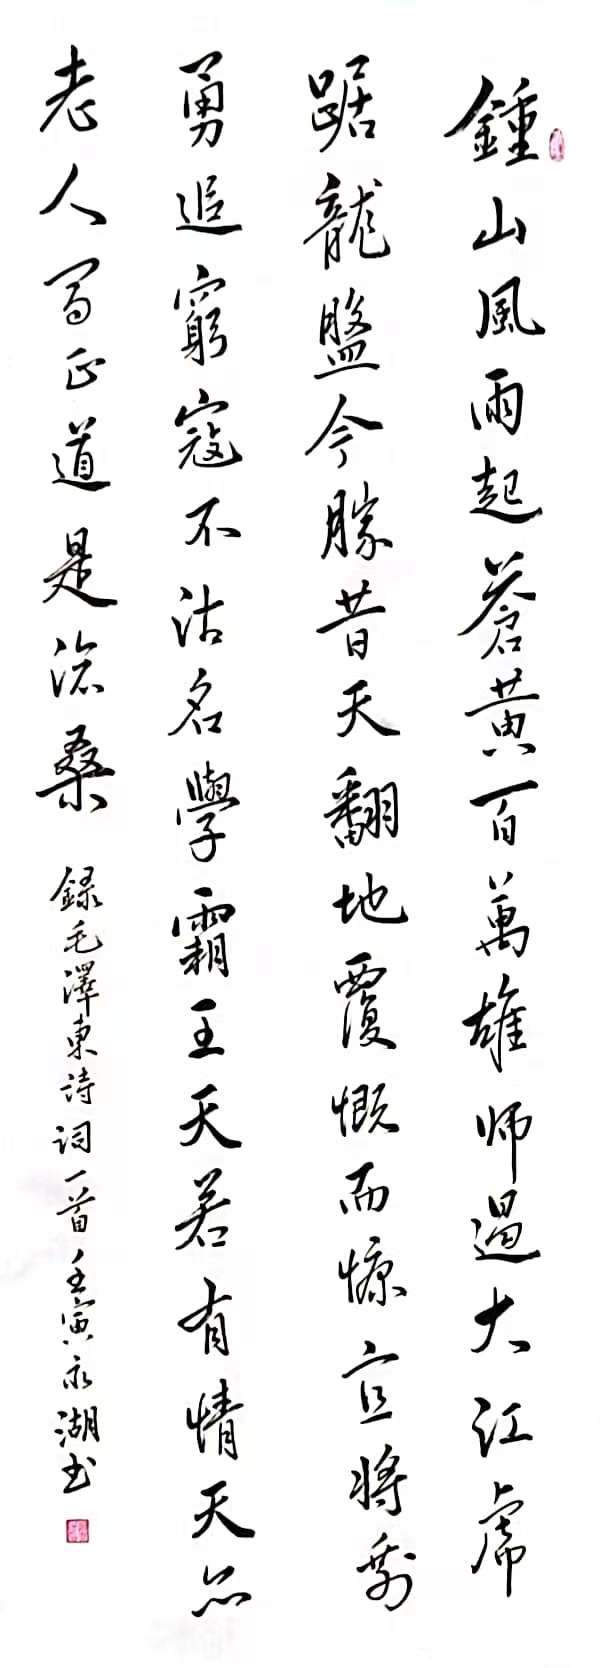 鍾山風雨起蒼黄百萬雄师過大江虎
踞龍盤今勝昔天翻地覆慨而慷宜將剩
勇追窮寇不沽名學霸王天若有情天亦
老人間正道是滄桑
録毛澤東詩詞一首壬寅永湖书